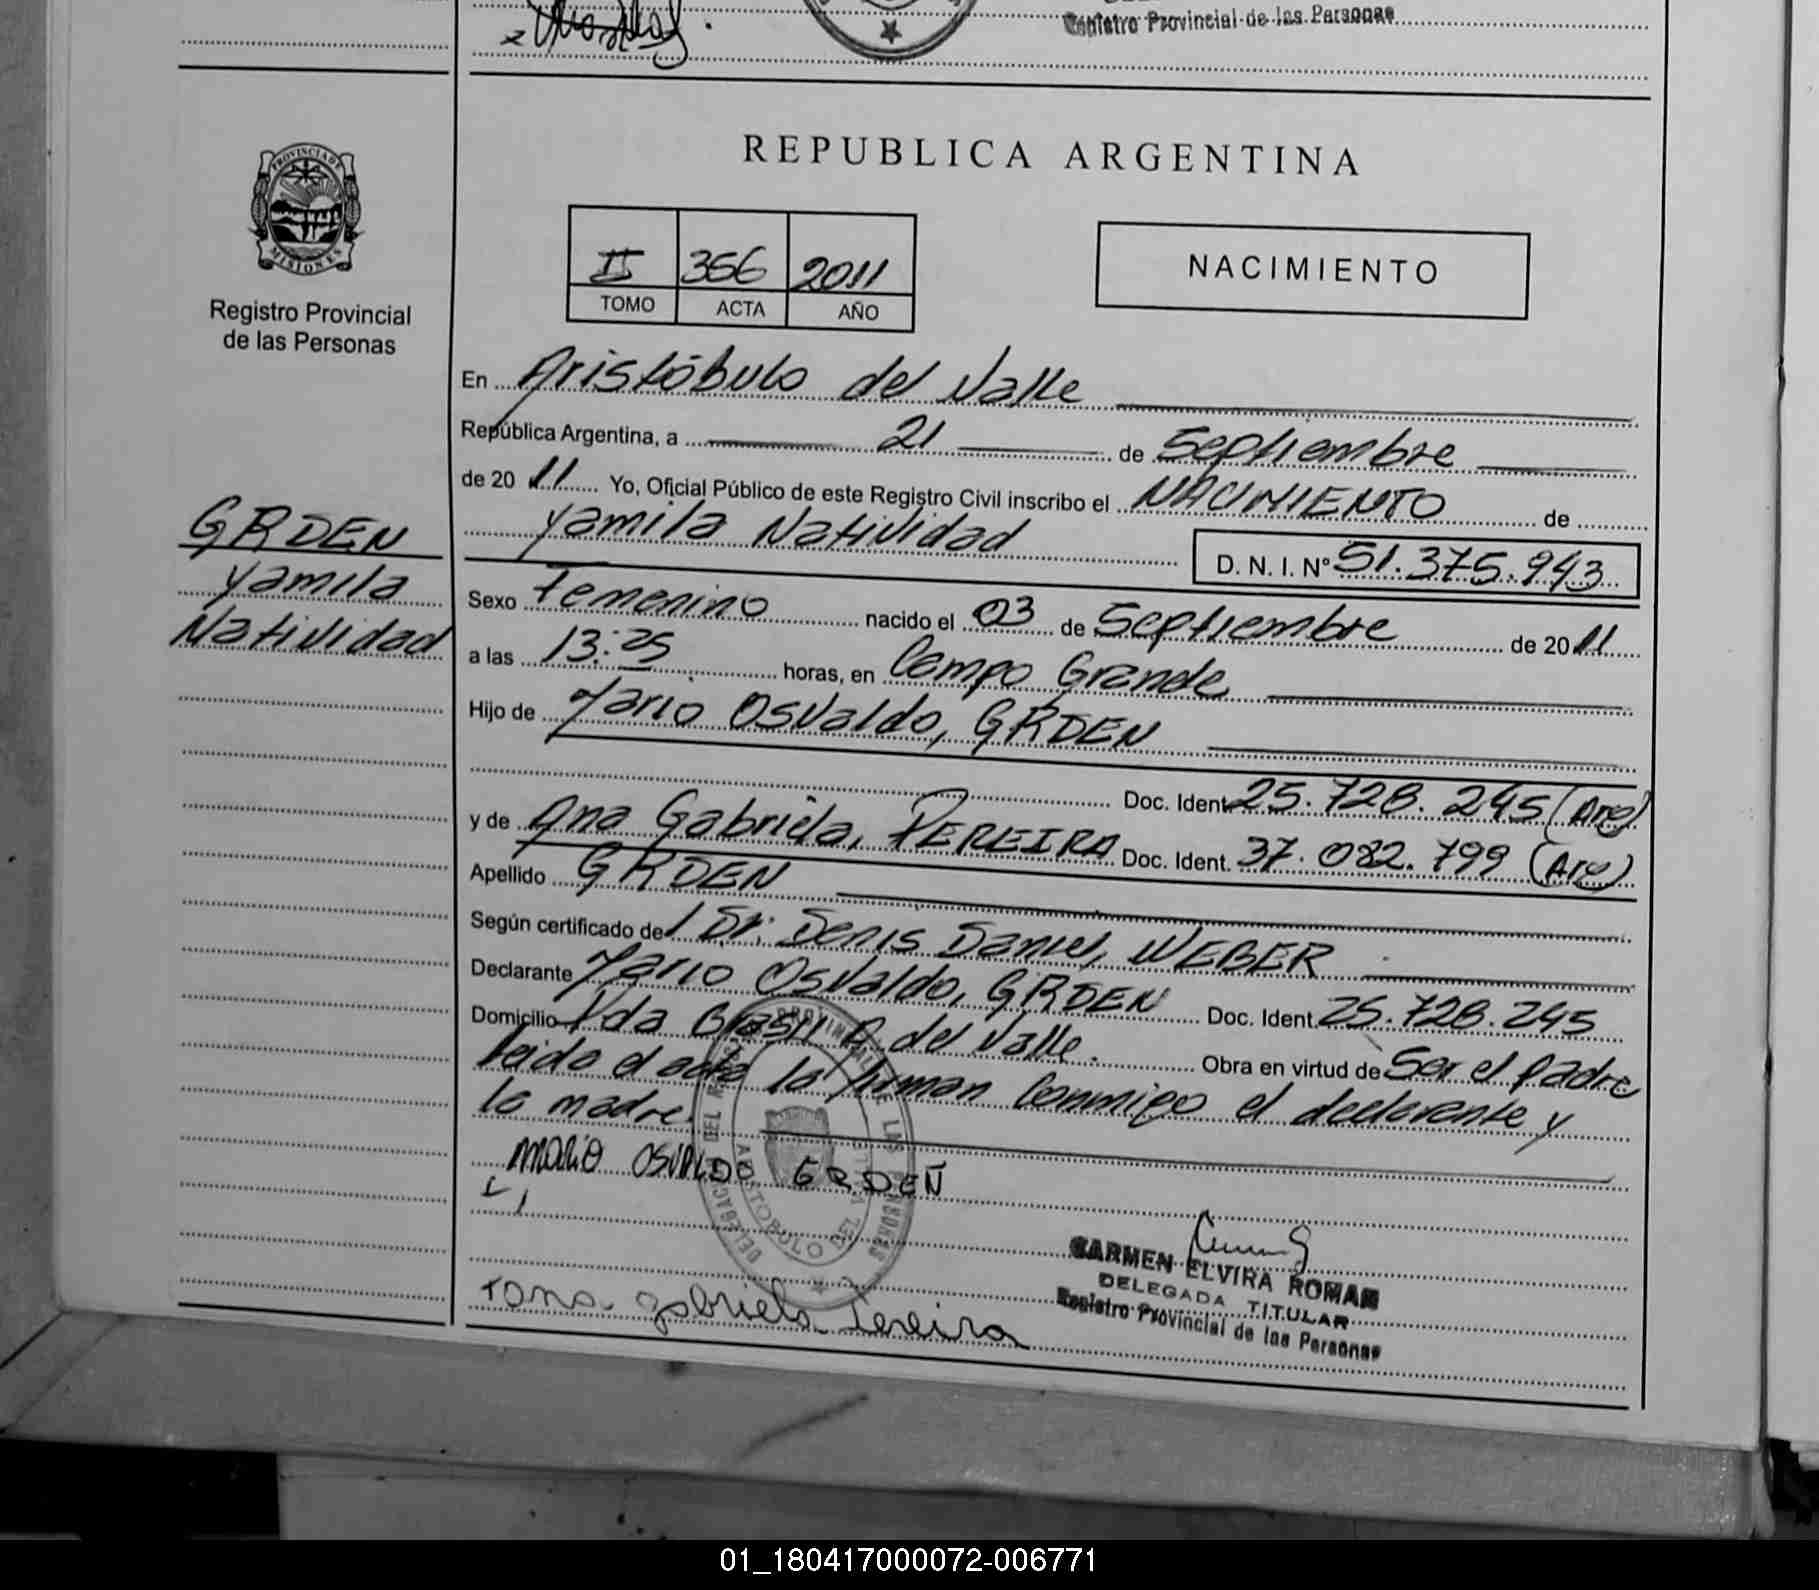 Registro Provincial de las Personas
REPUBLICA ARGENTINA
PROVINCIA DE
MISIONES
Registro Provincial
de las Personas
II 356 2011
TOMO ACTA AÑO
NACIMIENTO
GRDEN
Yamila
Natividad
En Aristóbulo del Valle
República Argentina, a 21 de Septiembre
de 2011 Yo, Oficial Público de este Registro Civil inscribo el NACIMIENTO de
Yamila Natividad D. N. I. Nº 51.375.943
Sexo Femenino nacido el 03 de Septiembre de 2011
a las 13:25 horas, en Campo Grande
Hijo de Mario Osvaldo, GRDEN
Doc. Ident. 25.728.245 (Arg)
y de Ana Gabriela, PEREIRA Doc. Ident. 37.082.799 (Arg)
Apellido GRDEN
Según certificado de Dr. Denis Daniel, WEBER
Declarante Mario Osvaldo, GRDEN Doc. Ident. 25.728.245
Domicilio Pda Brasil A. del Valle. Obra en virtud de Ser el padre
Leida el acta la firman conmigo el declarante y
la madre.
MARIO OSVALDO GRDEN
Ana gabriela Pereira
CARMEN ELVIRA ROMAN
DELEGADA TITULAR
Registro Provincial de las Personas
01_180417000072-006771